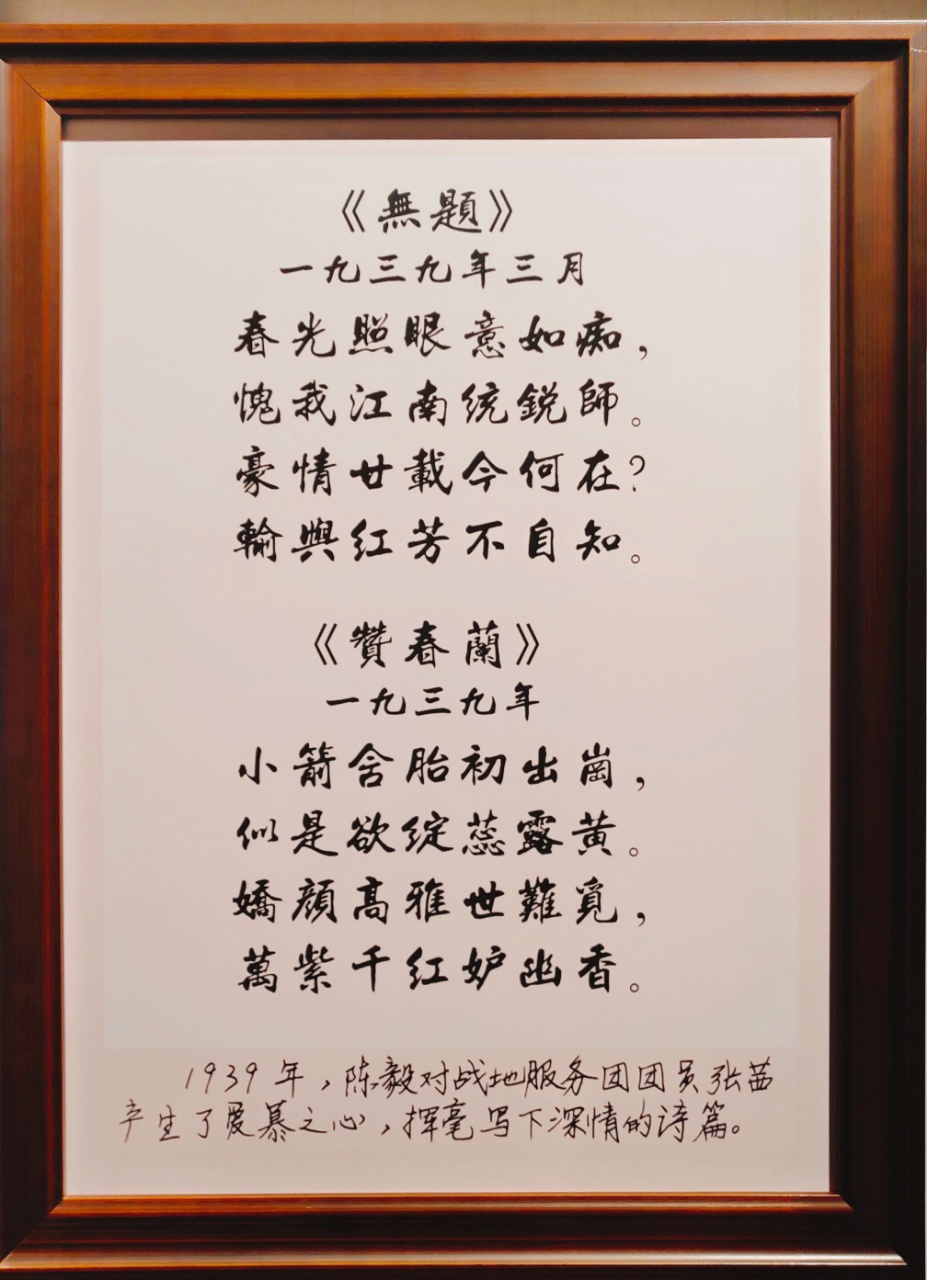 《無題》
一九三九年三月
春光照眼意如痴，
愧我江南統鋭師。
豪情廿載今何在？
輸與红芳不自知。
《贊春蘭》
一九三九年
小箭含胎初出崗，
似是欲綻蕊露黄。
嬌顔高雅世難覓，
萬紫千红妒幽香。
1939年，陈毅对战地服务团团员张茜
产生了爱慕之心，挥毫写下深情的诗篇。